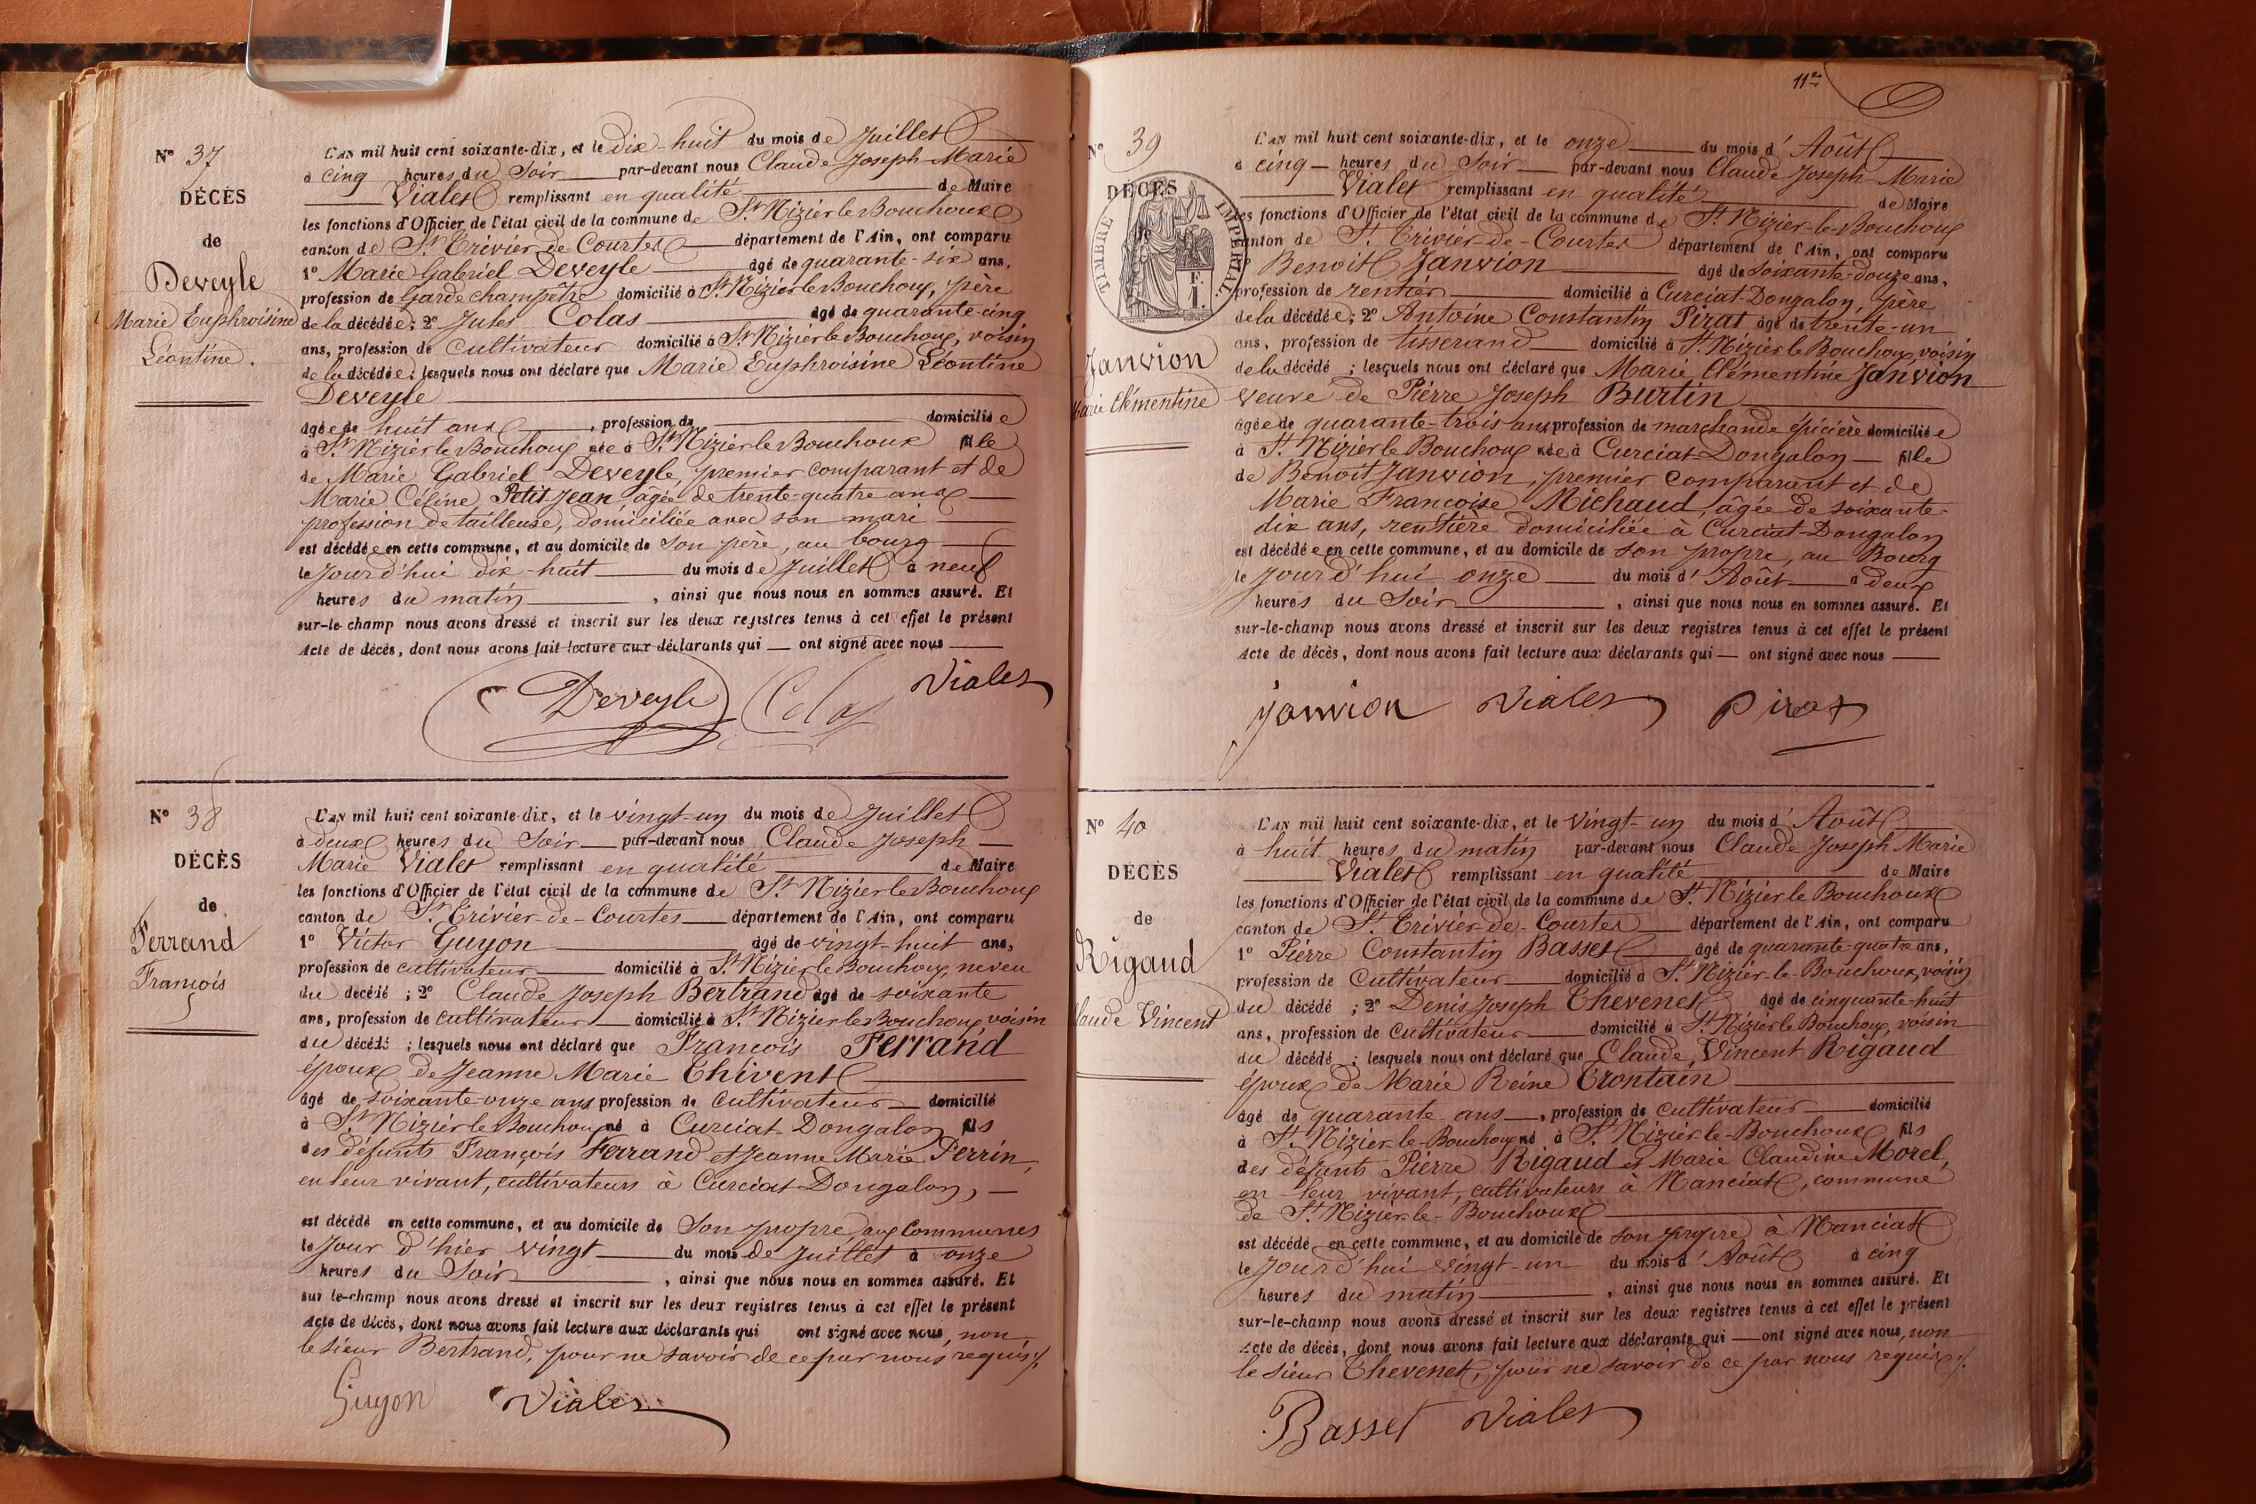 N° 37
DÉCÈS
de
Deveyle
Marie Euphroisine
Léontine.
L'AN mil huit cent soixante-dix, et le dix-huit du mois de Juillet
à cinq heures du Soir par-devant nous Claude Joseph Marie
Vialet remplissant en qualité de Maire
les fonctions d'Officier de l'état civil de la commune de St Nizier le Bouchoux
canton de St Trivier de Courtes département de l'Ain, ont comparu
1° Marie Gabriel Deveyle âgé de quarante-six ans,
profession de Garde champêtre domicilié à St Nizier le Bouchoux, père
de la décédée; 2° Jules Colas âgé de quarante-cinq
ans, profession de Cultivateur domicilié à St Nizier le Bouchoux, voisin
de la décédée; lesquels nous ont déclaré que Marie Euphroisine Léontine
Deveyle
âgée de huit ans, profession de domiciliée
à St Nizier le Bouchoux née à St Nizier le Bouchoux fille
de Marie Gabriel Deveyle, premier comparant et de
Marie Céline Petitjean âgée de trente-quatre ans
profession de tailleuse, domiciliée avec son mari
est décédée en cette commune, et au domicile de son père, au bourg
le Jourd'hui dix-huit du mois de Juillet à neuf
heures du matin, ainsi que nous nous en sommes assuré. Et
sur-le-champ nous avons dressé et inscrit sur les deux registres tenus à cet effet le présent
Acte de décès, dont nous avons fait lecture aux déclarants qui ont signé avec nous
Deveyle Colas Vialet
N° 38
DÉCÈS
de
Ferrand
François
L'AN mil huit cent soixante-dix, et le vingt-un du mois de Juillet
à deux heures du Soir par-devant nous Claude Joseph
Marie Vialet remplissant en qualité de Maire
les fonctions d'Officier de l'état civil de la commune de St Nizier le Bouchoux
canton de St Trivier-de-Courtes département de l'Ain, ont comparu
1° Victor Guyon âgé de vingt-huit ans,
profession de cultivateur domicilié à St Nizier le Bouchoux, neveu
du décédé; 2° Claude Joseph Bertrand âgé de soixante
ans, profession de cultivateur domicilié à St Nizier le Bouchoux, voisin
du décédé; lesquels nous ont déclaré que François Ferrand
époux de Jeanne Marie Thivent
âgé de soixante-onze ans profession de cultivateur domicilié
à St Nizier le Bouchoux né à Curciat-Dongalon fils
des défunts François Ferrand et Jeanne Marie Perrin,
en leur vivant, cultivateurs à Curciat-Dongalon,
est décédé en cette commune, et au domicile de Son propre aux Communes
le Jour d'hier vingt du mois de Juillet à onze
heures du Soir, ainsi que nous nous en sommes assuré. Et
sur-le-champ nous avons dressé et inscrit sur les deux registres tenus à cet effet le présent
Acte de décès, dont nous avons fait lecture aux déclarants qui ont signé avec nous, non
le sieur Bertrand, pour ne savoir de ce par nous requis
Guyon Vialet
11e
N° 39
DÉCÈS
de
TIMBRE IMPÉRIAL
1 F.
Janvion
Marie Clémentine
L'AN mil huit cent soixante-dix, et le onze du mois d'Août
à cinq heures du Soir par-devant nous Claude Joseph Marie
Vialet remplissant en qualité de Maire
les fonctions d'Officier de l'état civil de la commune de St Nizier-le-Bouchoux
canton de St Trivier-de-Courtes département de l'Ain, ont comparu
1° Benoît Janvion âgé de soixante-douze ans,
profession de rentier domicilié à Curciat-Dongalon, père
de la décédée; 2° Antoine Constantin Pirat âgé de trente-un
ans, profession de tisserand domicilié à St Nizier le Bouchoux, voisin
de la décédé; lesquels nous ont déclaré que Marie Clémentine Janvion
veuve de Pierre Joseph Burtin
âgée de quarante-trois ans profession de marchande épicière domiciliée
à St Nizier le Bouchoux née à Curciat-Dongalon fille
de Benoît Janvion, premier comparant et de
Marie Françoise Michaud, âgée de soixante-
dix ans, rentière domiciliée à Curciat-Dongalon
est décédée en cette commune, et au domicile de son propre, au Bourg
le Jourd'hui onze du mois d'Août à deux
heures du Soir, ainsi que nous nous en sommes assuré. Et
sur-le-champ nous avons dressé et inscrit sur les deux registres tenus à cet effet le présent
Acte de décès, dont nous avons fait lecture aux déclarants qui ont signé avec nous
janvion Vialet Pirat
N° 40
DÉCÈS
de
Rigaud
Claude Vincent
L'AN mil huit cent soixante-dix, et le vingt-un du mois d'Août
à huit heures du matin par-devant nous Claude Joseph Marie
Vialet remplissant en qualité de Maire
les fonctions d'Officier de l'état civil de la commune de St Nizier le Bouchoux
canton de St Trivier-de-Courtes département de l'Ain, ont comparu
1° Pierre Constantin Basset âgé de quarante-quatre ans,
profession de Cultivateur domicilié à St Nizier-le-Bouchoux, voisin
du décédé; 2° Denis Joseph Thevenet âgé de cinquante-huit
ans, profession de Cultivateur domicilié à St Nizier le Bouchoux, voisin
du décédé; lesquels nous ont déclaré que Claude Vincent Rigaud
époux de Marie Reine Trontain
âgé de quarante ans, profession de cultivateur domicilié
à St Nizier-le-Bouchoux né à St Nizier-le-Bouchoux fils
des défunts Pierre Rigaud et Marie Claudine Morel,
en leur vivant, cultivateurs à Manciat, commune
de St Nizier-le-Bouchoux
est décédé en cette commune, et au domicile de son propre à Manciat
le Jourd'hui vingt-un du mois d'Août à cinq
heures du matin, ainsi que nous nous en sommes assuré. Et
sur-le-champ nous avons dressé et inscrit sur les deux registres tenus à cet effet le présent
Acte de décès, dont nous avons fait lecture aux déclarants qui ont signé avec nous, non
le sieur Thevenet, pour ne savoir de ce par nous requis.
Basset Vialet